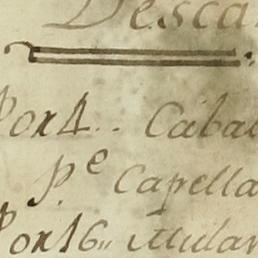 Desca
Por 4.. Cabal
p.e Capella
Por 16,, Mular